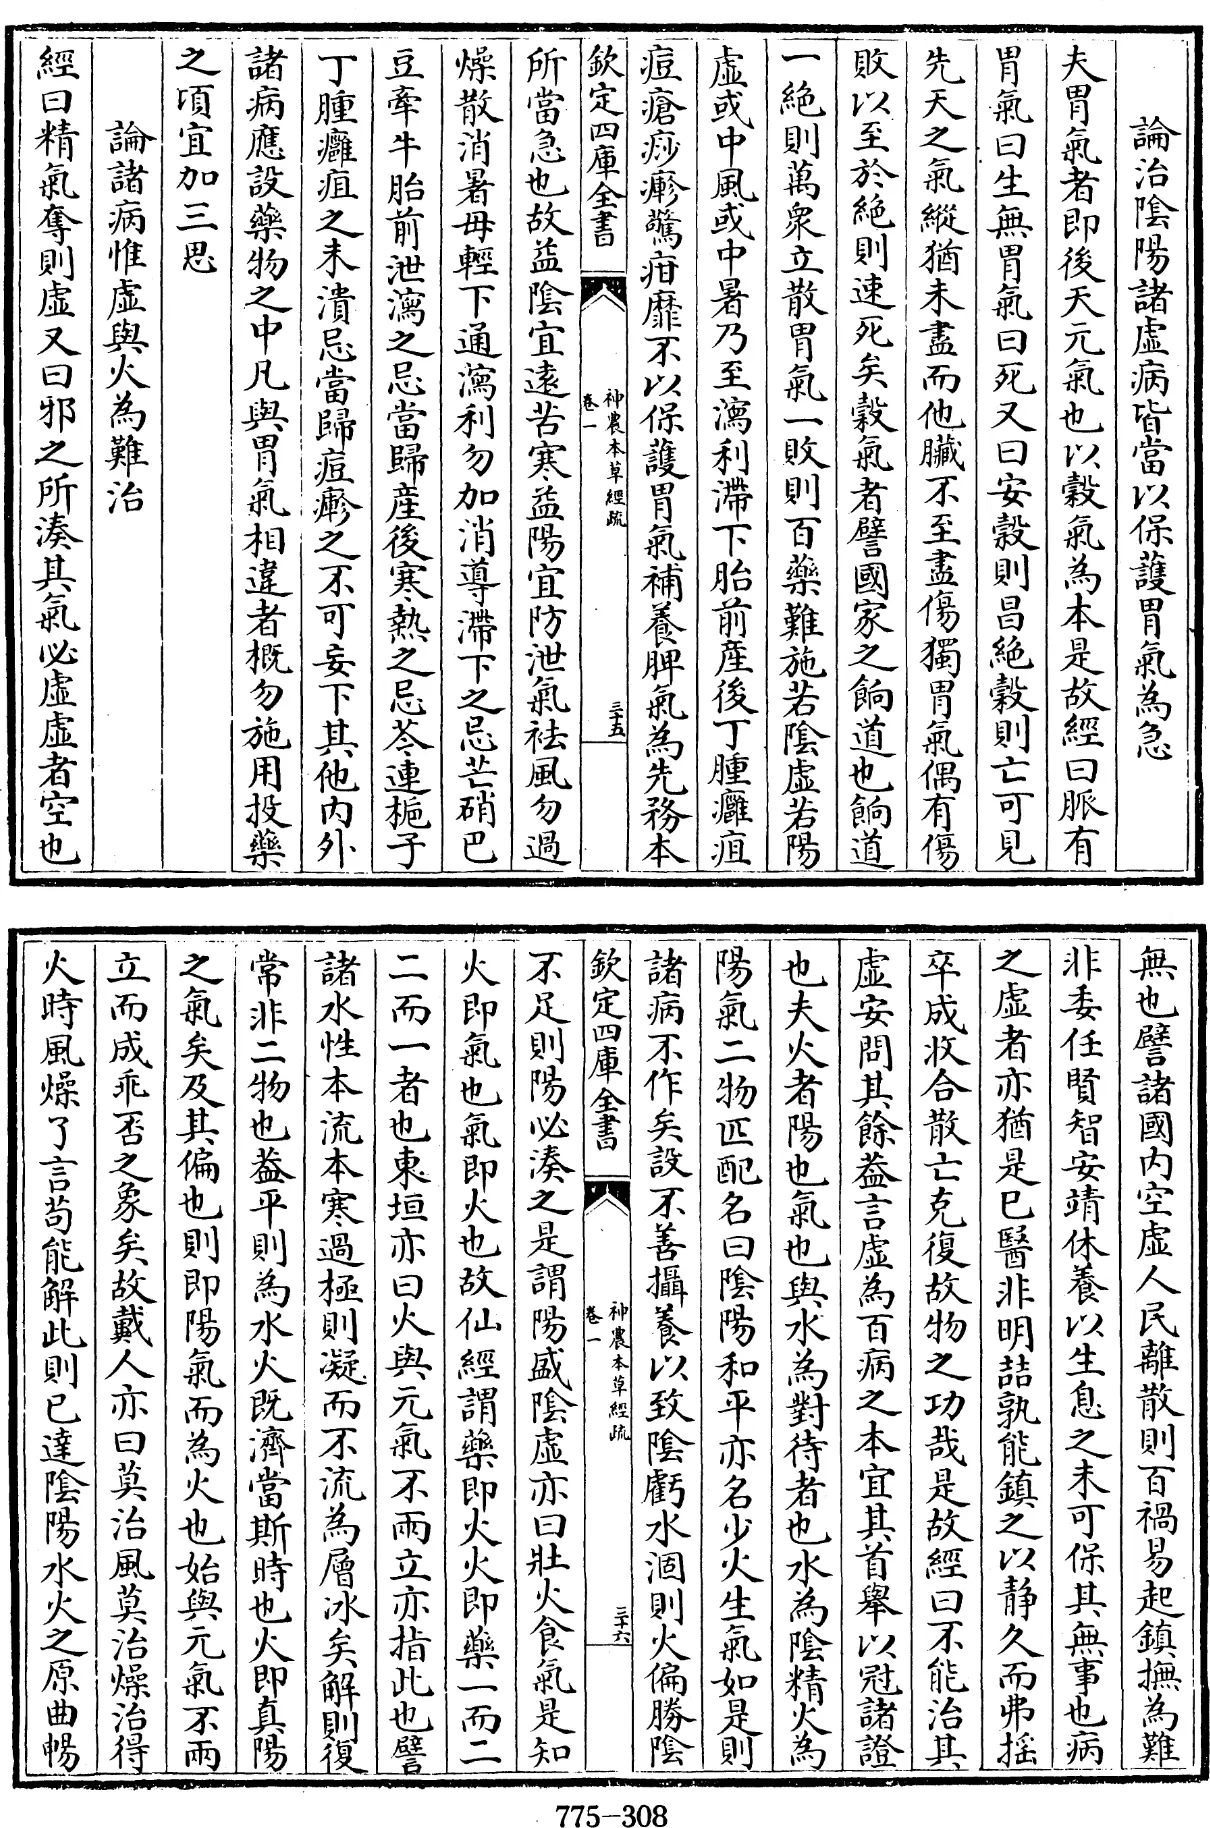 論治陰陽諸虛病皆當以保護胃氣為急
夫胃氣者即後天元氣也以穀氣為本是故經曰脈有
胃氣曰生無胃氣曰死又曰安穀則昌絶穀則亡可見
先天之氣縱猶未盡而他臟不至盡傷獨胃氣偶有傷
敗以至於絶則速死矣穀氣者譬國家之餉道也餉道
一絶則萬衆立散胃氣一敗則百藥難施若陰虛若陽
虛或中風或中暑乃至瀉利滯下胎前産後丁腫癰疽
痘瘡痧瘮驚疳靡不以保護胃氣補養脾氣為先務本
欽定四庫全書
神農本草經疏
卷一
三十五
所當急也故益陰宜遠苦寒益陽宜防泄氣祛風勿過
燥散消暑毋輕下通瀉利勿加消導滯下之忌芒硝巴
豆牽牛胎前泄瀉之忌當歸産後寒熱之忌芩連梔子
丁腫癰疽之未潰忌當歸痘瘮之不可妄下其他内外
諸病應設藥物之中凡與胃氣相違者概勿施用投藥
之頃宜加三思
論諸病惟虛與火為難治
經曰精氣奪則虛又曰邪之所湊其氣必虛虛者空也
無也譬諸國内空虛人民離散則百禍易起鎮撫為難
非委任賢智安靖休養以生息之未可保其無事也病
之虛者亦猶是已醫非明喆孰能鎮之以静久而弗摇
卒成收合散亡克復故物之功哉是故經曰不能治其
虛安問其餘葢言虛為百病之本宜其首舉以冠諸證
也夫火者陽也氣也與水為對待者也水為陰精火為
陽氣二物匹配名曰陰陽和平亦名少火生氣如是則
諸病不作矣設不善攝養以致陰虧水涸則火偏勝陰
欽定四庫全書
神農本草經疏
卷一
三十六
不足則陽必湊之是謂陽盛陰虛亦曰壯火食氣是知
火即氣也氣即火也故仙經謂藥即火火即藥一而二
二而一者也東垣亦曰火與元氣不兩立亦指此也譬
諸水性本流本寒過極則凝而不流為層冰矣解則復
常非二物也葢平則為水火既濟當斯時也火即真陽
之氣矣及其偏也則即陽氣而為火也始與元氣不兩
立而成乖否之象矣故戴人亦曰莫治風莫治燥治得
火時風燥了言茍能解此則已達陰陽水火之原曲暢
775-308